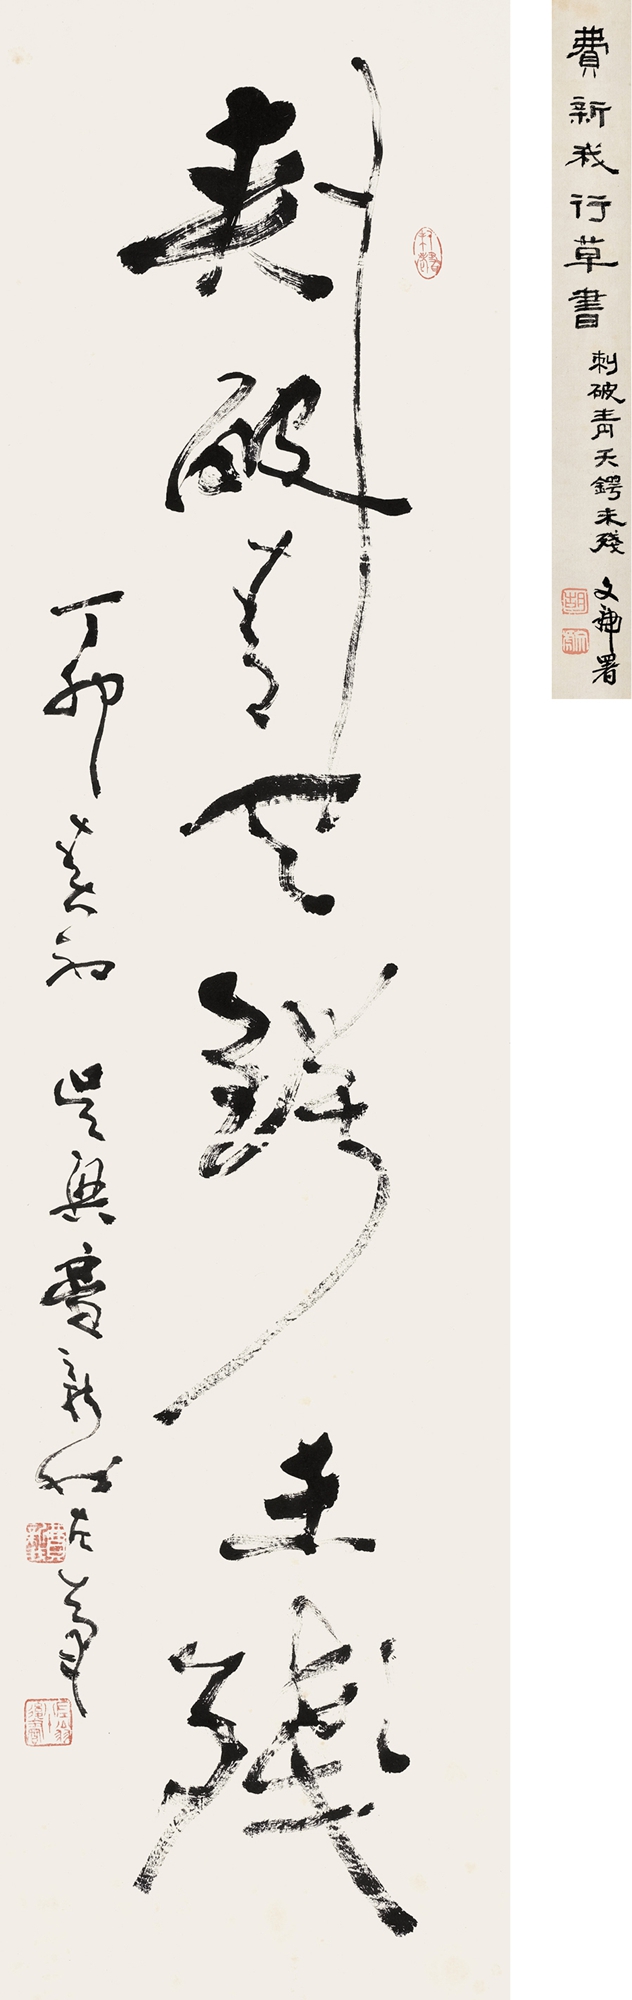 費新我行草書
刺破青天鍔未殘
文神署
刺破青天鍔未殘
丁卯春初 吳興費新我左筆